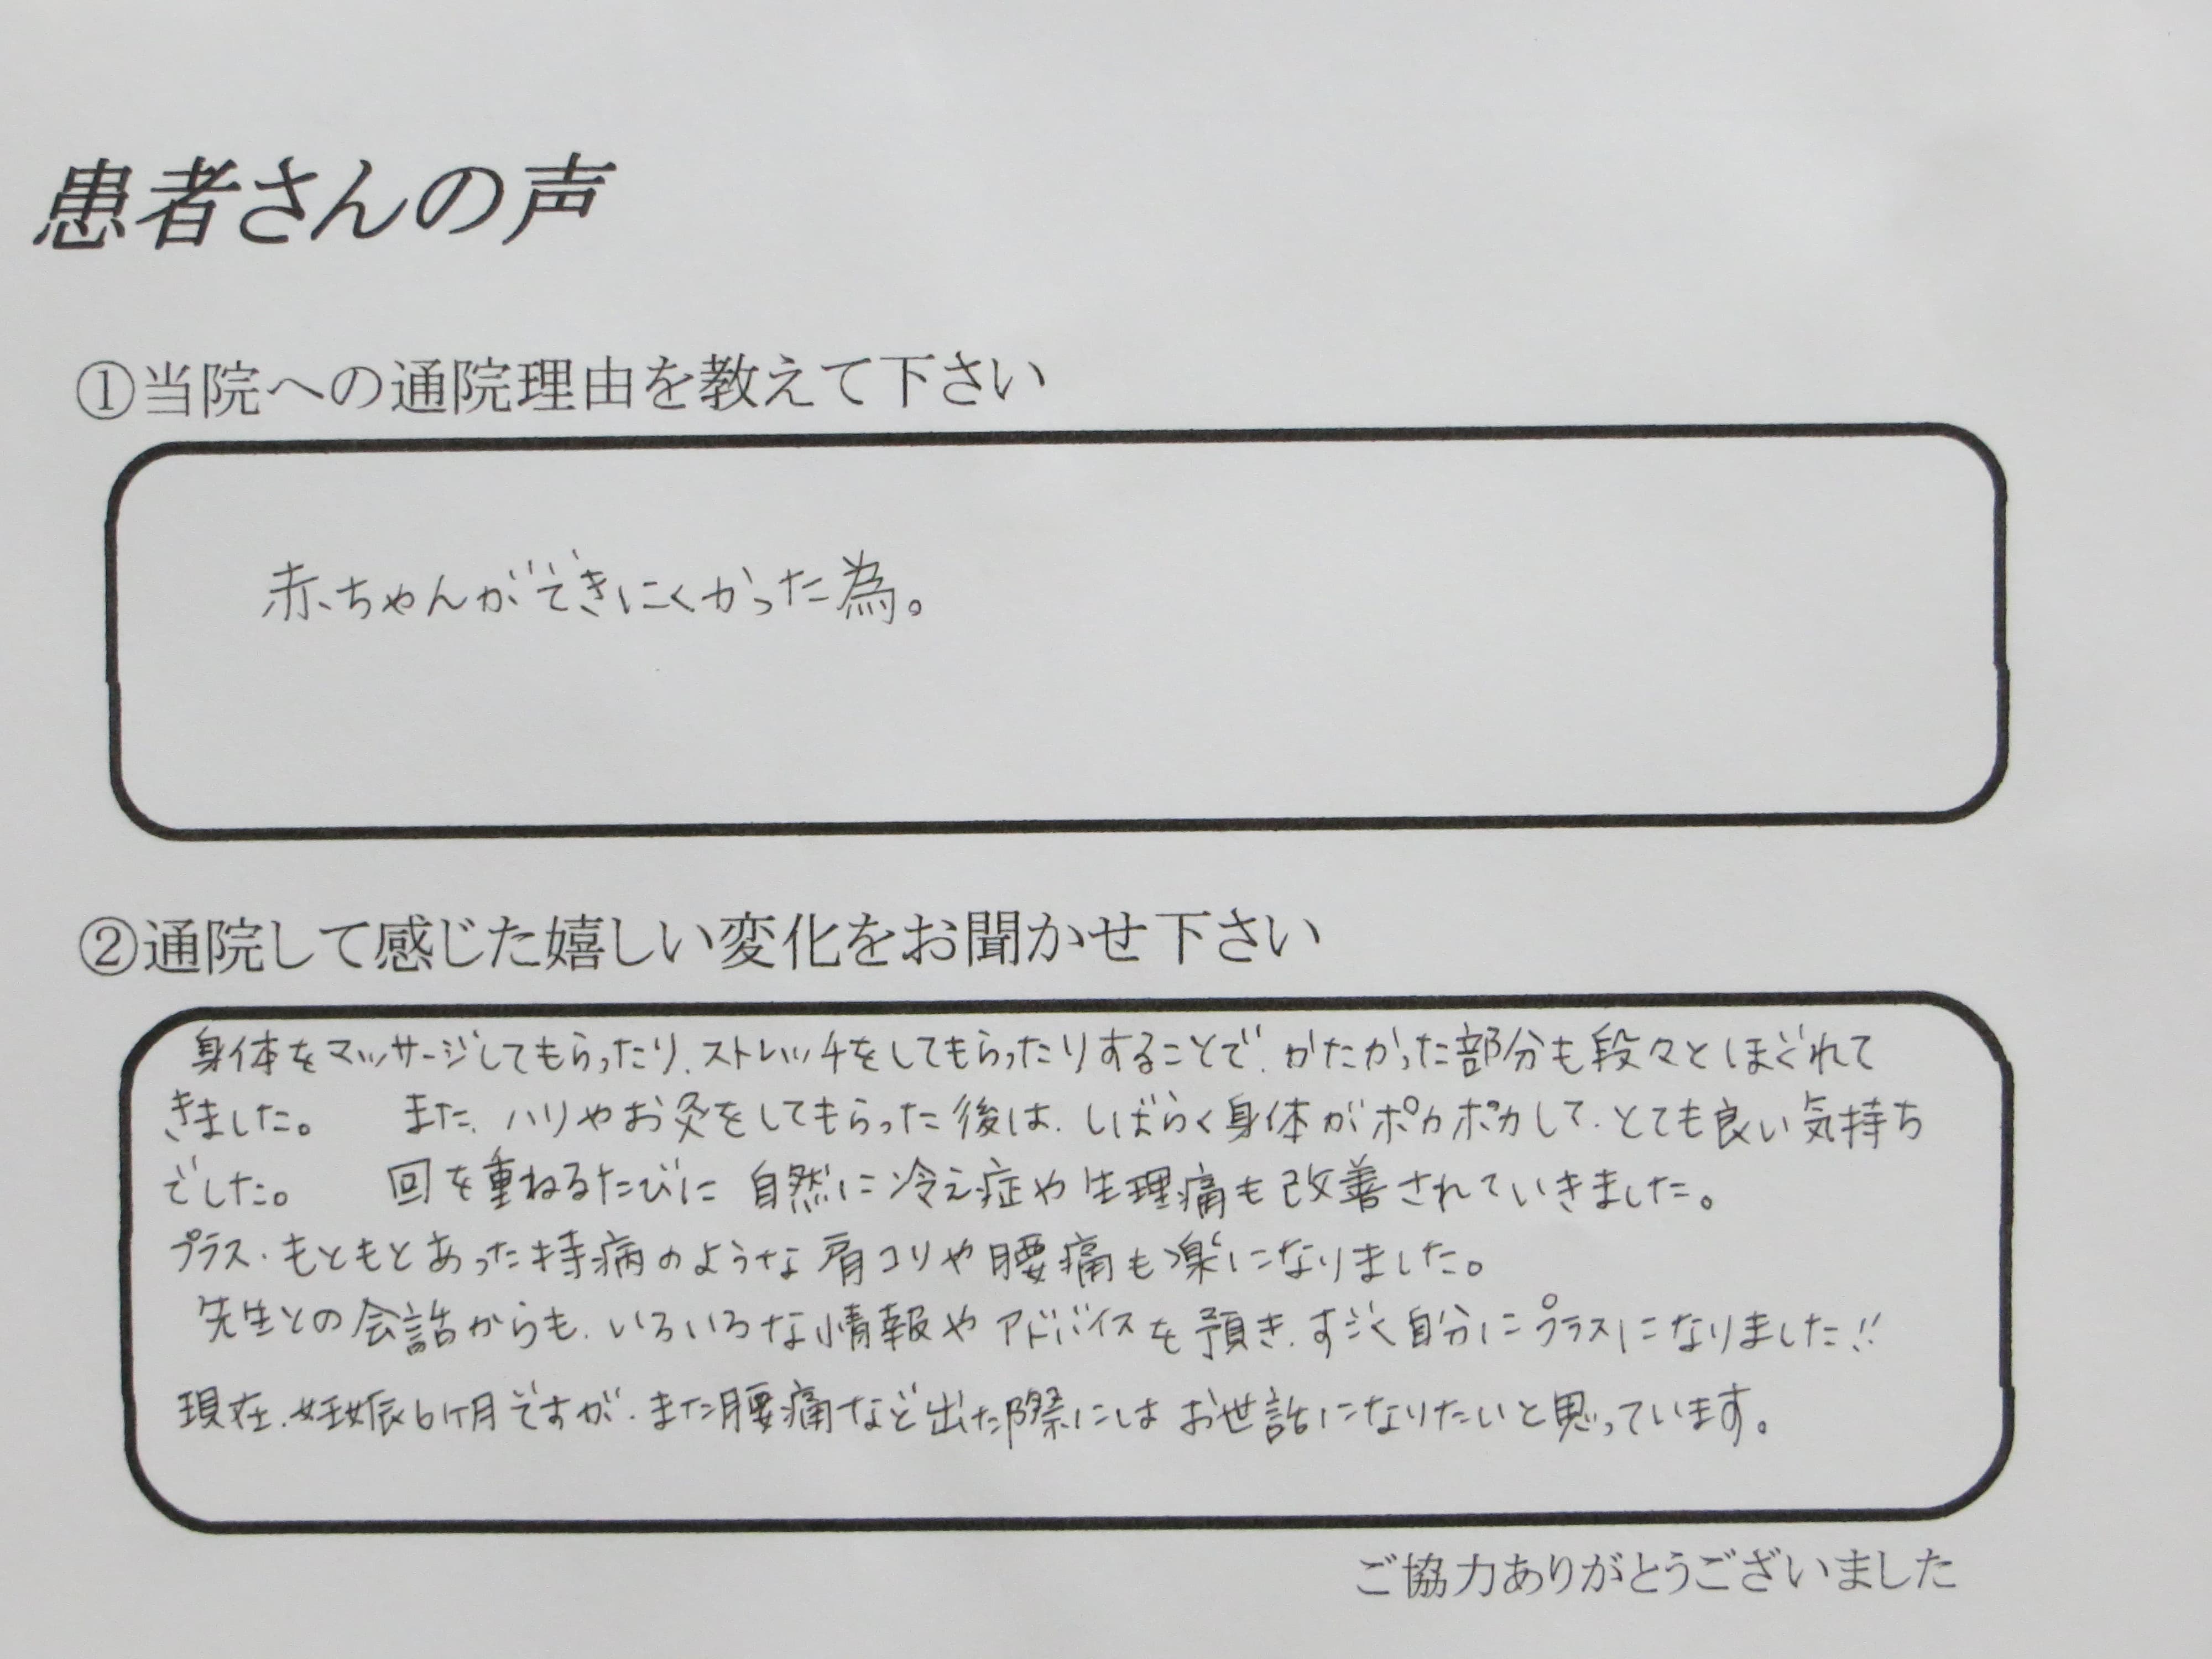 患者さんの声
①当院への通院理由を教えて下さい
赤ちゃんができにくかった為。
②通院して感じた嬉しい変化をお聞かせ下さい
身体をマッサージしてもらったり、ストレッチをしてもらったりすることで、かたかった部分も段々とほぐれて
きました。 また、ハリやお灸をしてもらった後は、しばらく身体がポカポカして、とても良い気持ち
でした。 回を重ねるたびに 自然に冷え症や生理痛も改善されていきました。
プラス、もともとあった持病のような肩コリや腰痛も楽になりました。
先生との会話からも、いろいろな情報やアドバイスを頂き、すごく自分にプラスになりました!!
現在、妊娠6ヶ月ですが、また腰痛など出た際にはお世話になりたいと思っています。
ご協力ありがとうございました